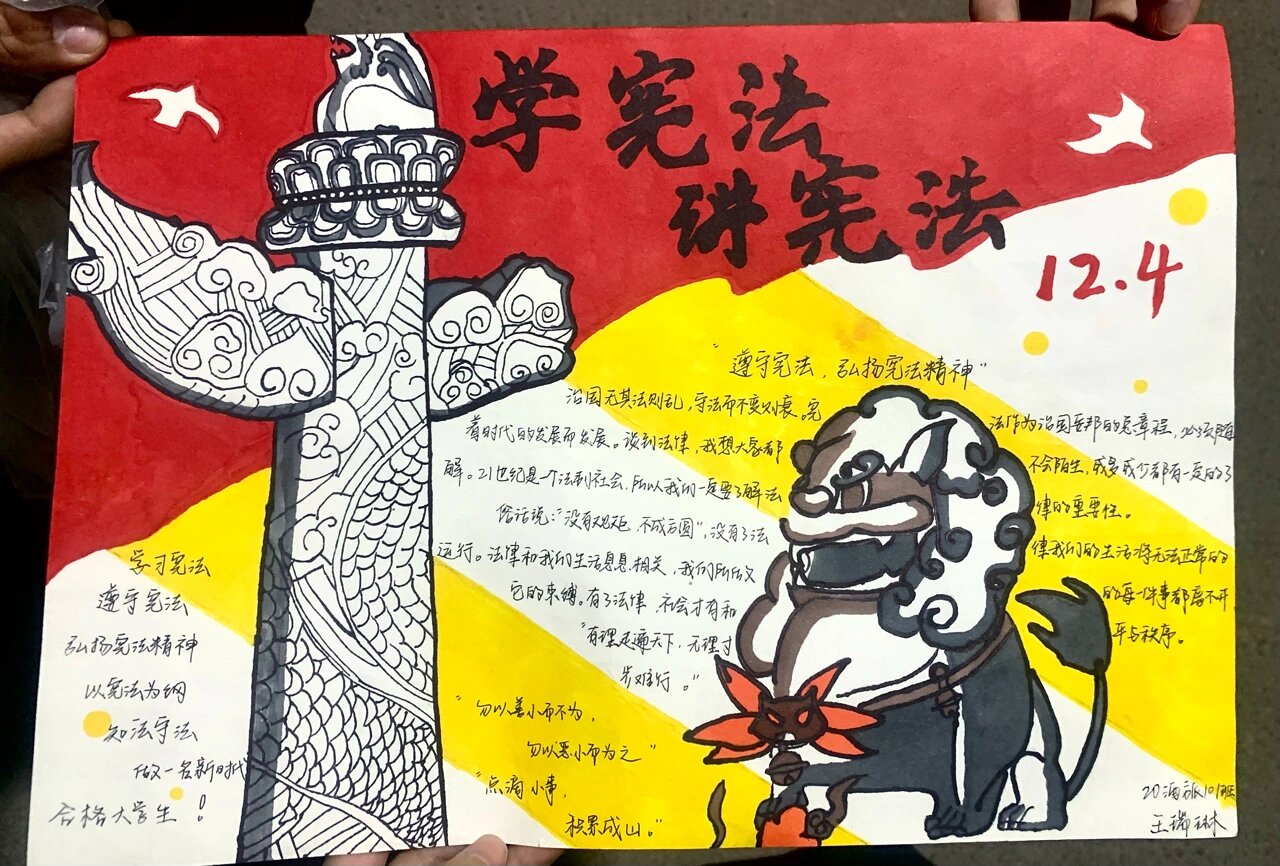 学宪法
讲宪法
12.4
"遵守宪法，弘扬宪法精神"
治国无其法则乱，守法而不变则衰。宪法作为治国安邦的总章程，必须随
着时代的发展而发展。谈到法律，我想大家都不会陌生，或多或少都有一定的了
解。21世纪是一个法制社会，所以我们一定要了解法律的重要性。
俗话说："没有规矩，不成方圆"，没有了法律我们的生活将无法正常的
运行。法律和我们生活息息相关，我们所做的每一件事都离不开
它的束缚。有了法律，社会才有和平与秩序。
"有理走遍天下，无理寸
步难行。"
"勿以善小而不为，
勿以恶小而为之"
"点滴小事，
积累成山。"
学习宪法
遵守宪法
弘扬宪法精神
以宪法为纲
知法守法
做一名新时代
合格大学生！
20酒旅101班
王瑞琳